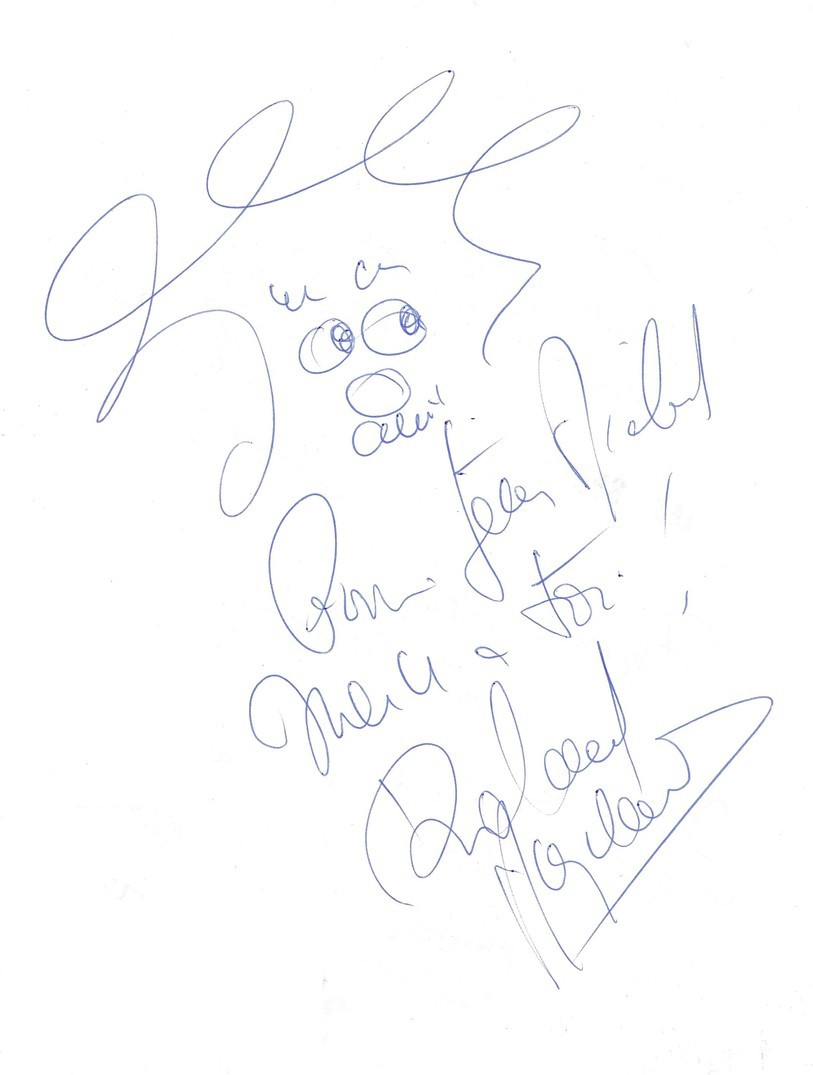 un
ami
Pour Jean Michel
merci à toi !
Roland Magdane